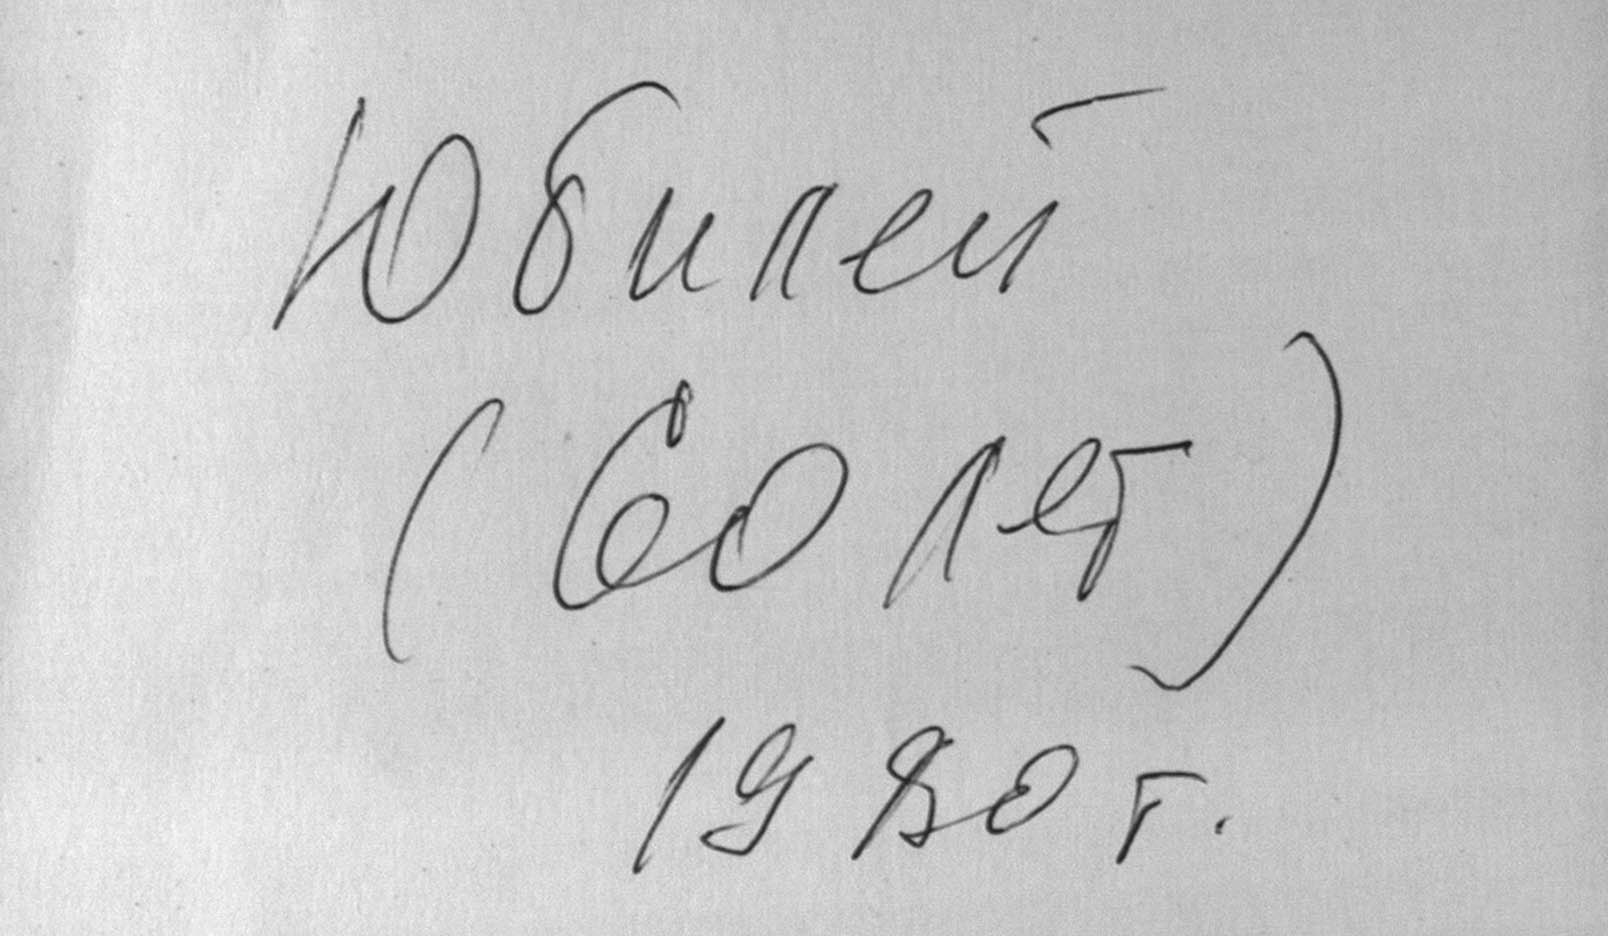 Юбилей
(60 лет)
1980 г.